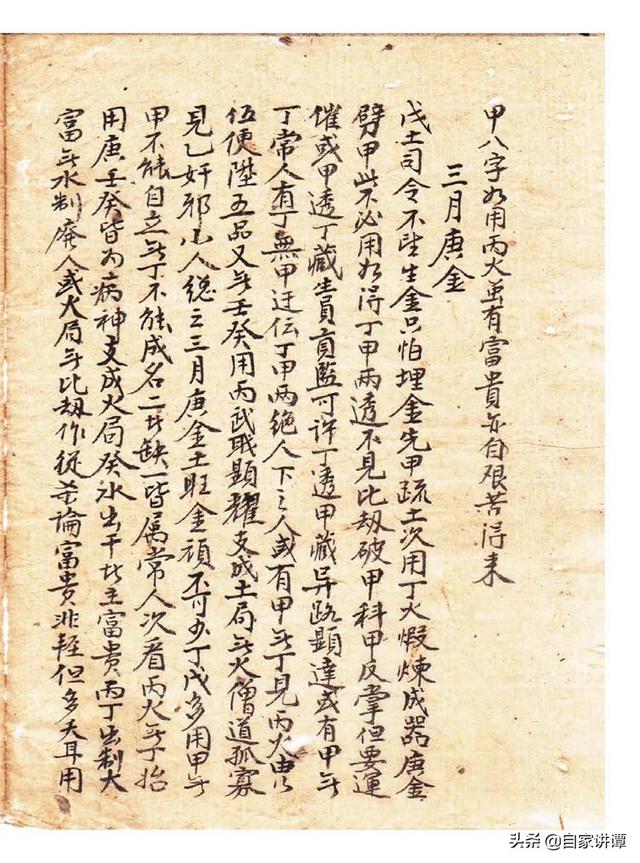 甲八字如用丙火虽有富貴亦自艰苦得来
三月庚金
戊土司令不生金只怕埋金先甲疏土次用丁火煆煉成器庚金
劈甲此不必用如得丁甲两透不見比劫破甲科甲反掌但要運
催或甲透丁藏生員貢監可許丁透甲藏异路顕達或有甲无
丁常人有丁無甲迂伝丁甲两绝人下之人或有甲无丁見丙火由
伍便陞五品又无壬癸用丙武职顕耀支成土局无火僧道孤寡
見乙奸邪小人総之三月庚金土旺金頑不可少丁戊多用甲无
甲不能自立无丁不能成名二者缺一皆属常人次看丙火无丁
用庚壬癸皆为病神支成火局癸水出干此主富貴丙丁出制大
富无水制廢人或火局无比劫作従杀論富貴非輕但多夭耳用
头条 @自家讲谭